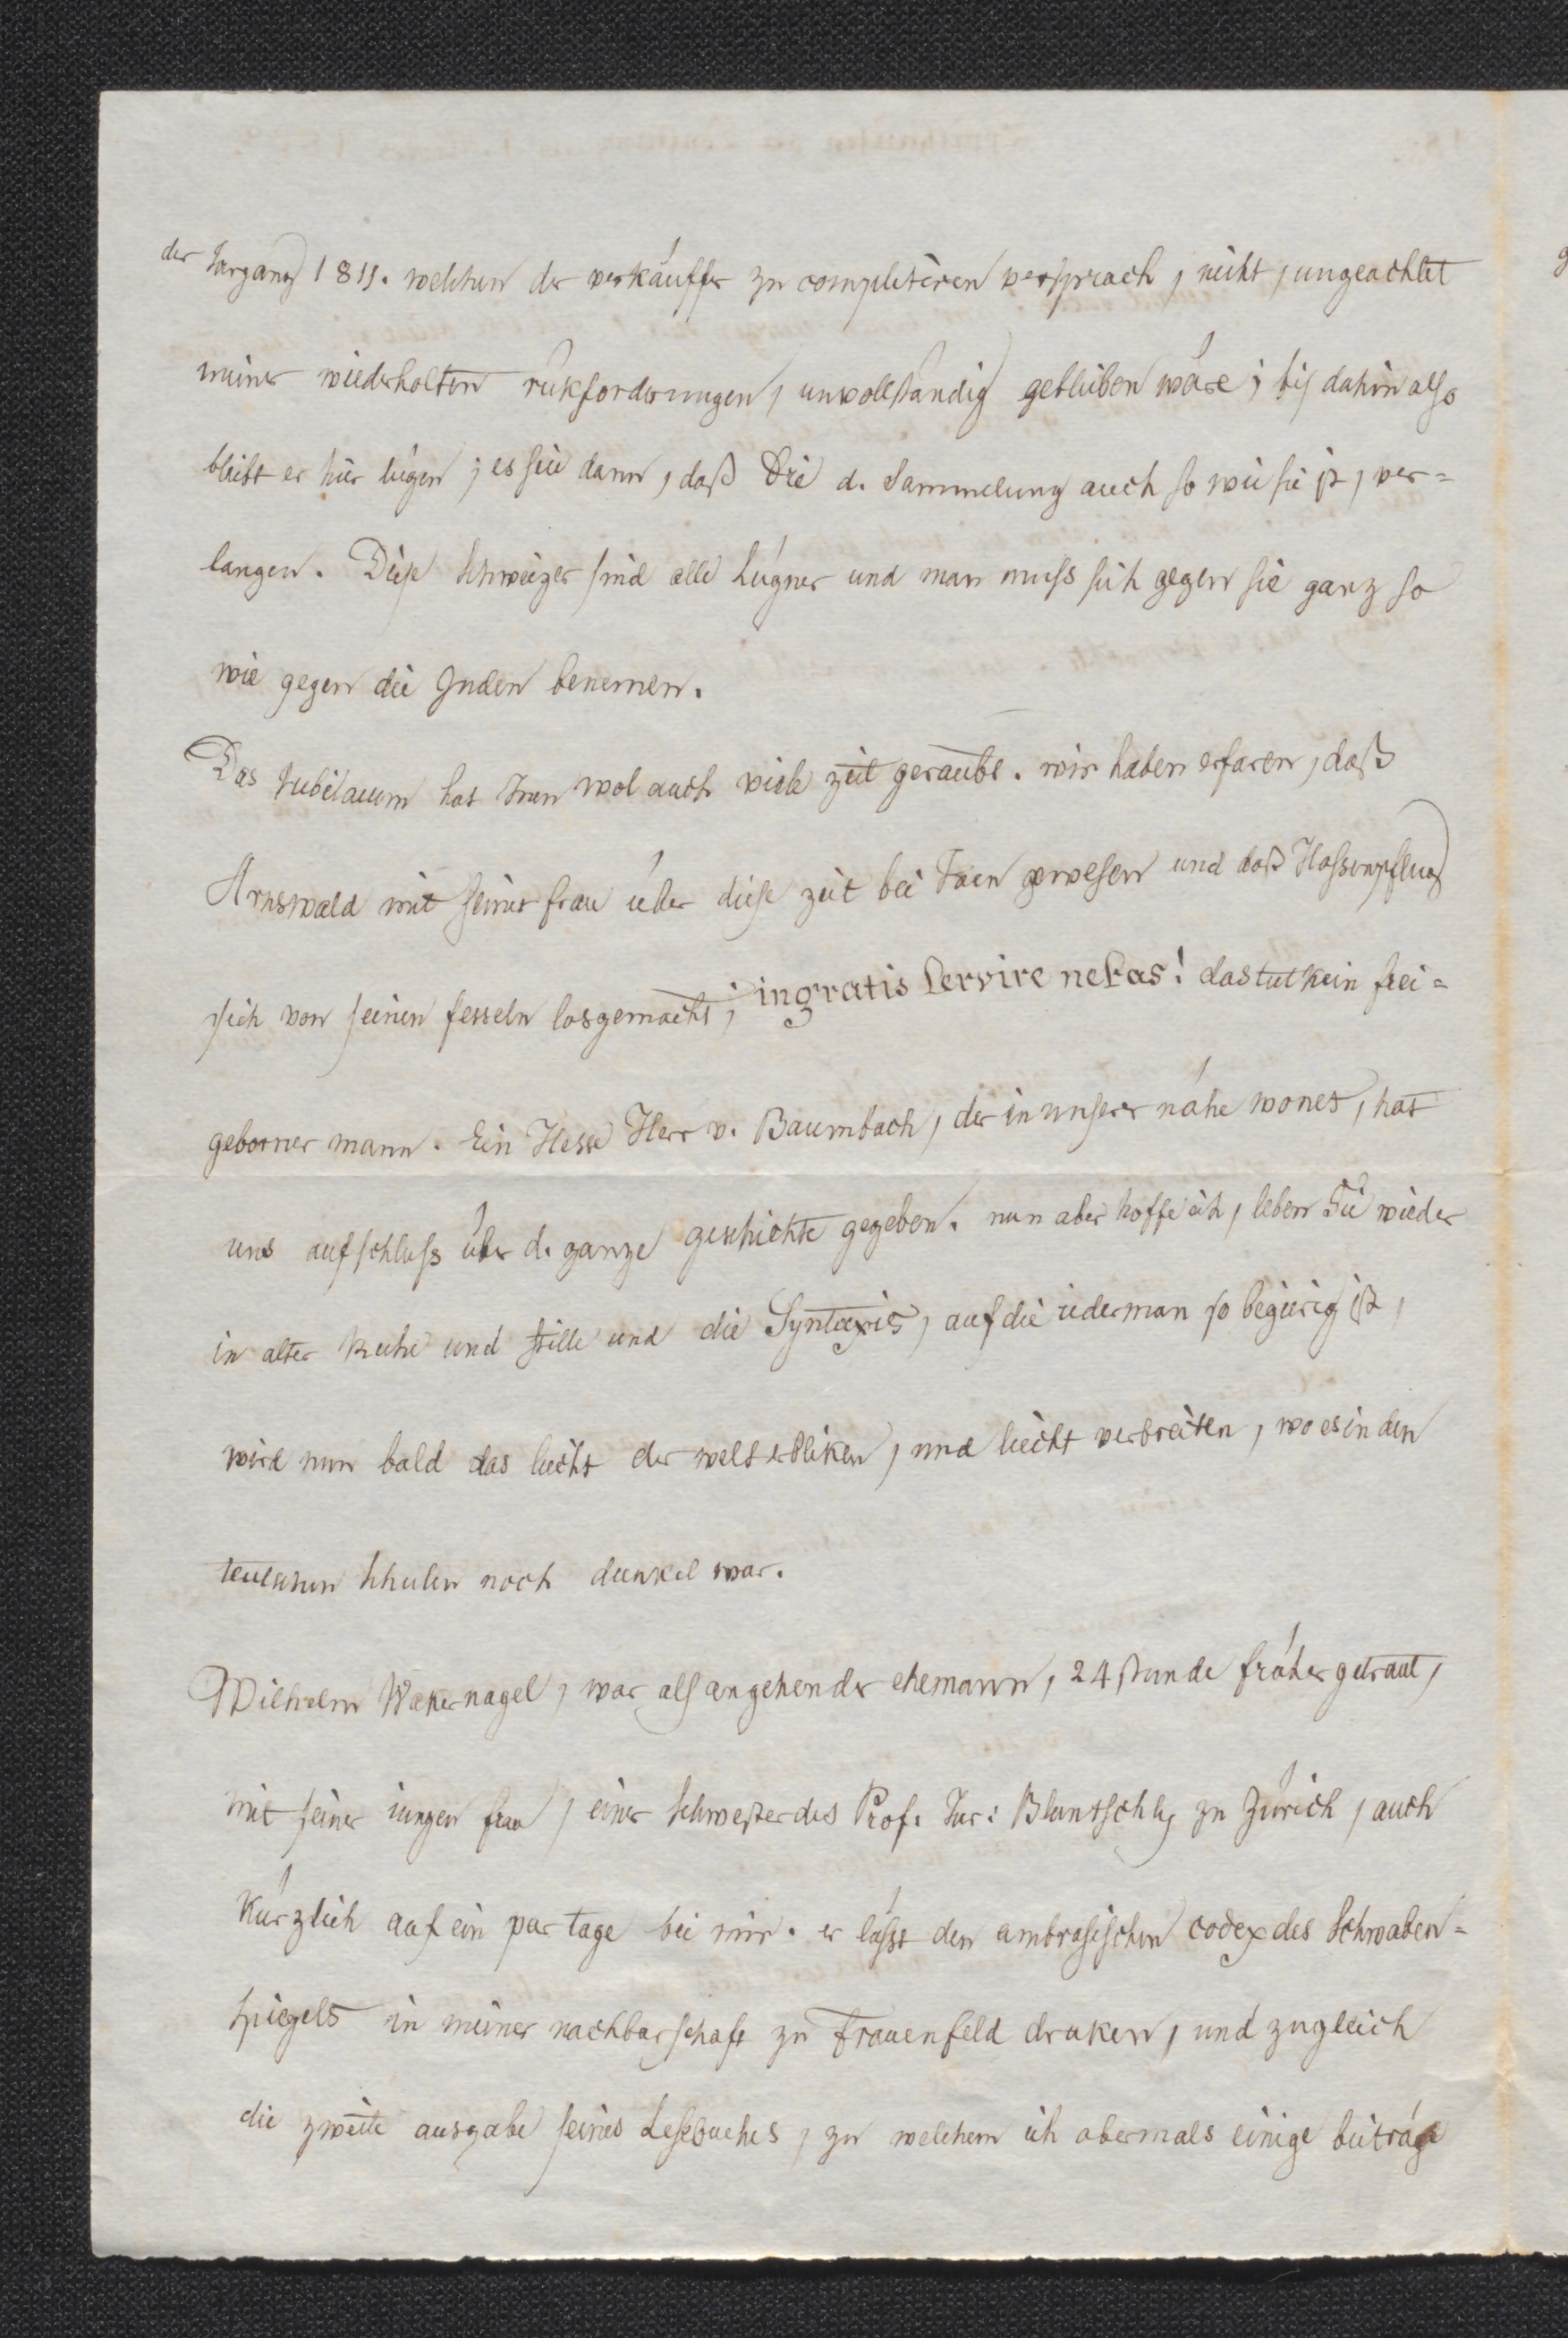 der Jargang 1811. welchen der verkäuffer zu completiren versprach, nicht, ungeachtet
meiner wiederholten rükforderungen, unvollständig geblieben wäre; bis dahin also
bleibt er hier ligen; es sei dann, daß Sie d. Sammelung auch so wie sie ist, ver-
langen. Dise Schweizer sind alle Lügner und man muss sich gegen sie ganz so
wie gegen die Juden benemen.
Das Jubilaeum hat Inen wol auch viele zeit geraubt. wir haben erfaren, daß
Arnswald mit seiner frau über diese zeit bei Inen gewesen und daß Hassenpflug
sich von seinen fesseln losgemacht; ingratis servire nefas! das tut kein frei-
geborner mann. Ein Hesse Herr v. Baumbach, der in unserer nähe wonet, hat
uns aufschluss über d. ganze geschichte gegeben. nun aber hoffe ich, leben Sie wieder
in alter Ruhe und stille und die Syntaxis, auf die iederman so begierig ist,
wird nun bald das liecht der welt erbliken, und liecht verbreiten, wo es in den
teutschen schulen noch dunkel war.
Wilhelm Wakernagel, war als angehender ehemann, 24 stunde früher getraut,
mit seiner iungen frau, einer schwester des Prof. Jur: Bluntschly zu Zürich, auch
kürzlich auf ein par tage bei mir. er lässt den ambrasischen codex des Schwaben-
spiegels in meiner nachbarschaft zu Frauenfeld druken, und zugleich
die zweite ausgabe seines Lesebuches, zu welchem ich abermals einige beiträge